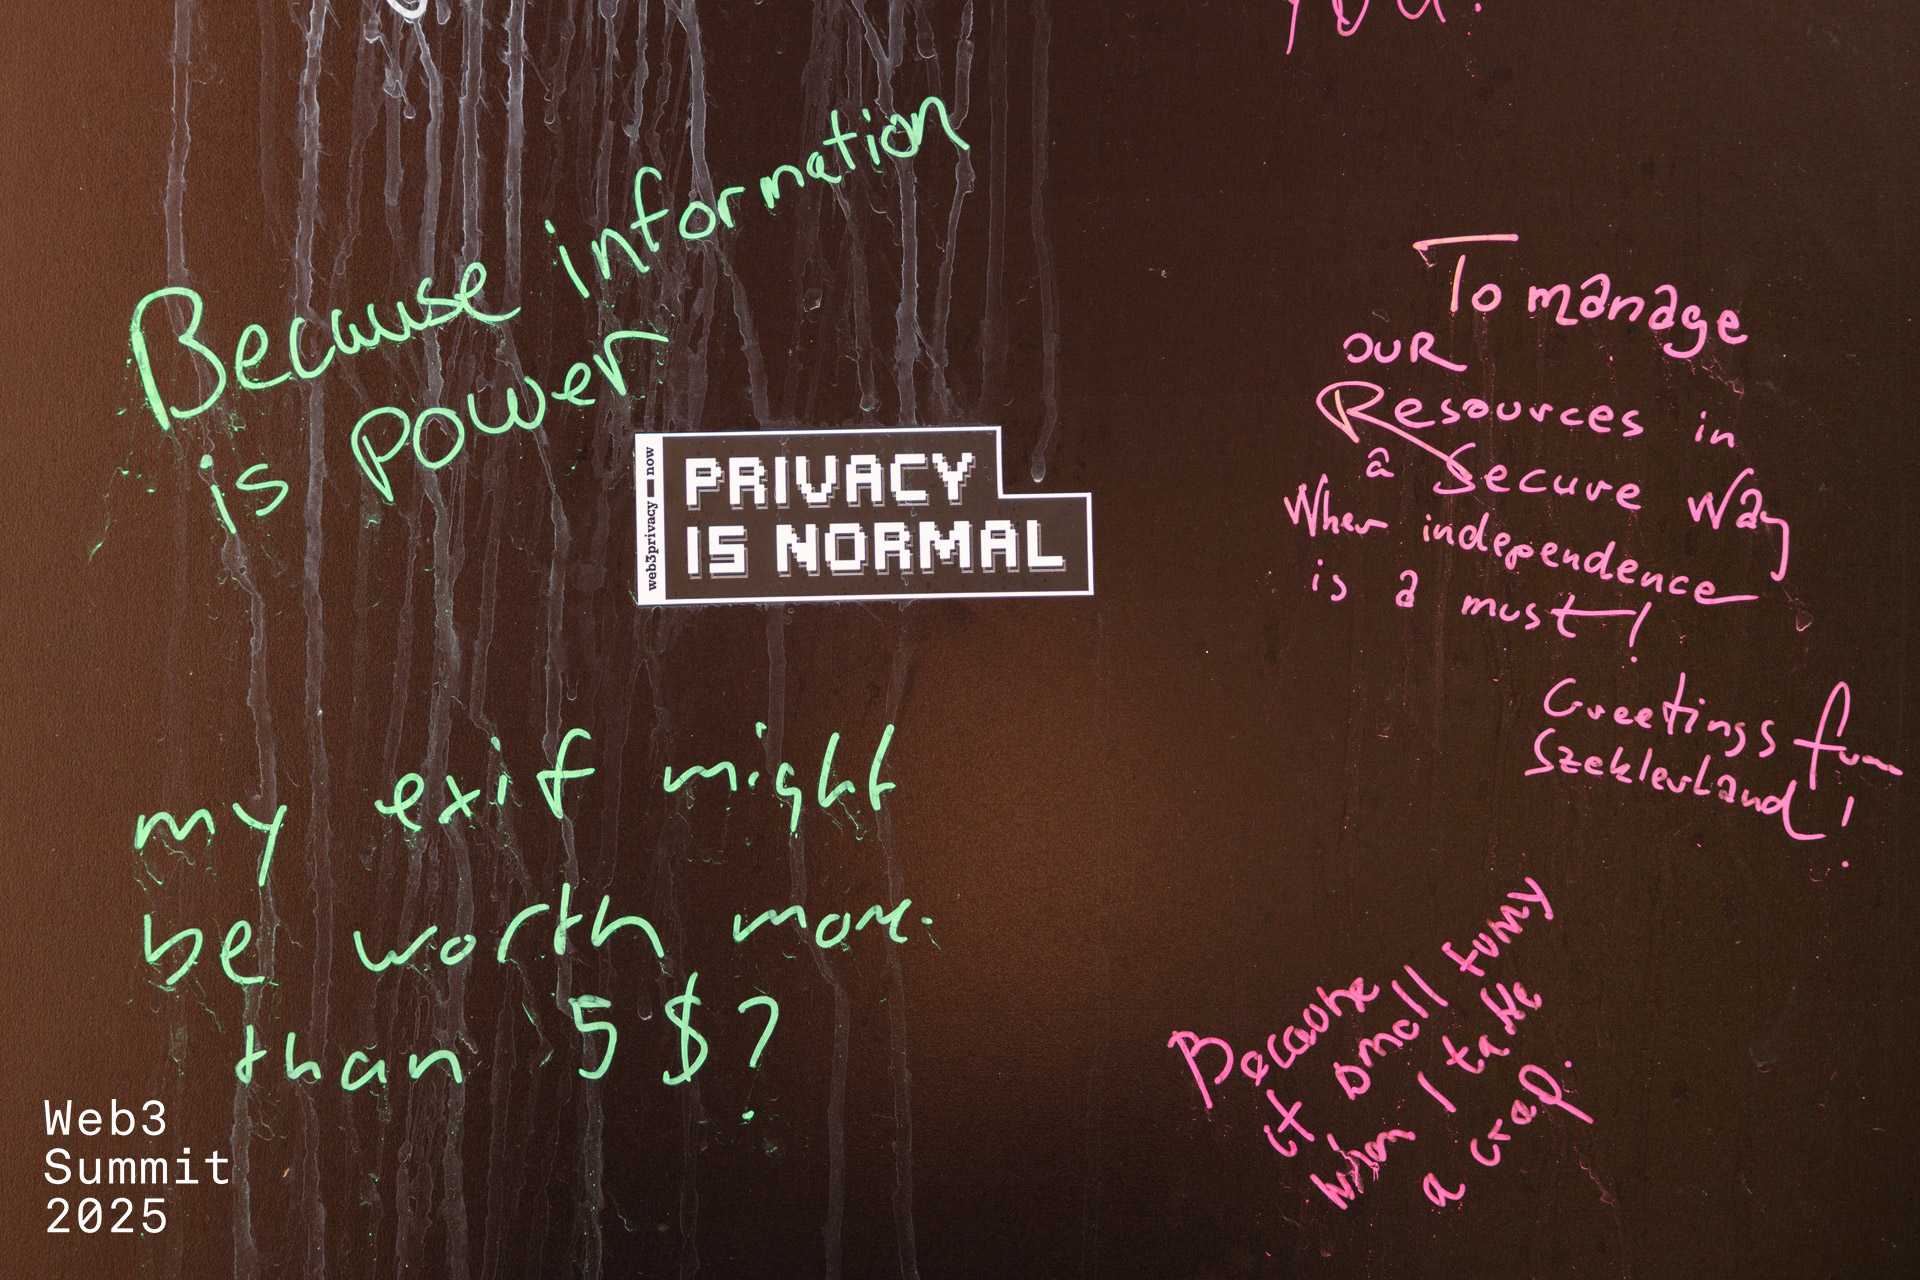 you!
Because information
is power
web3privacy now
PRIVACY
IS NORMAL
To manage
our
Resources in
a Secure way
When independence
is a must!
Greetings from
Szeklerland!
my exif might
be worth more
than 5 $?
Because
it small funny
when I take
a crap.
Web3
Summit
2025